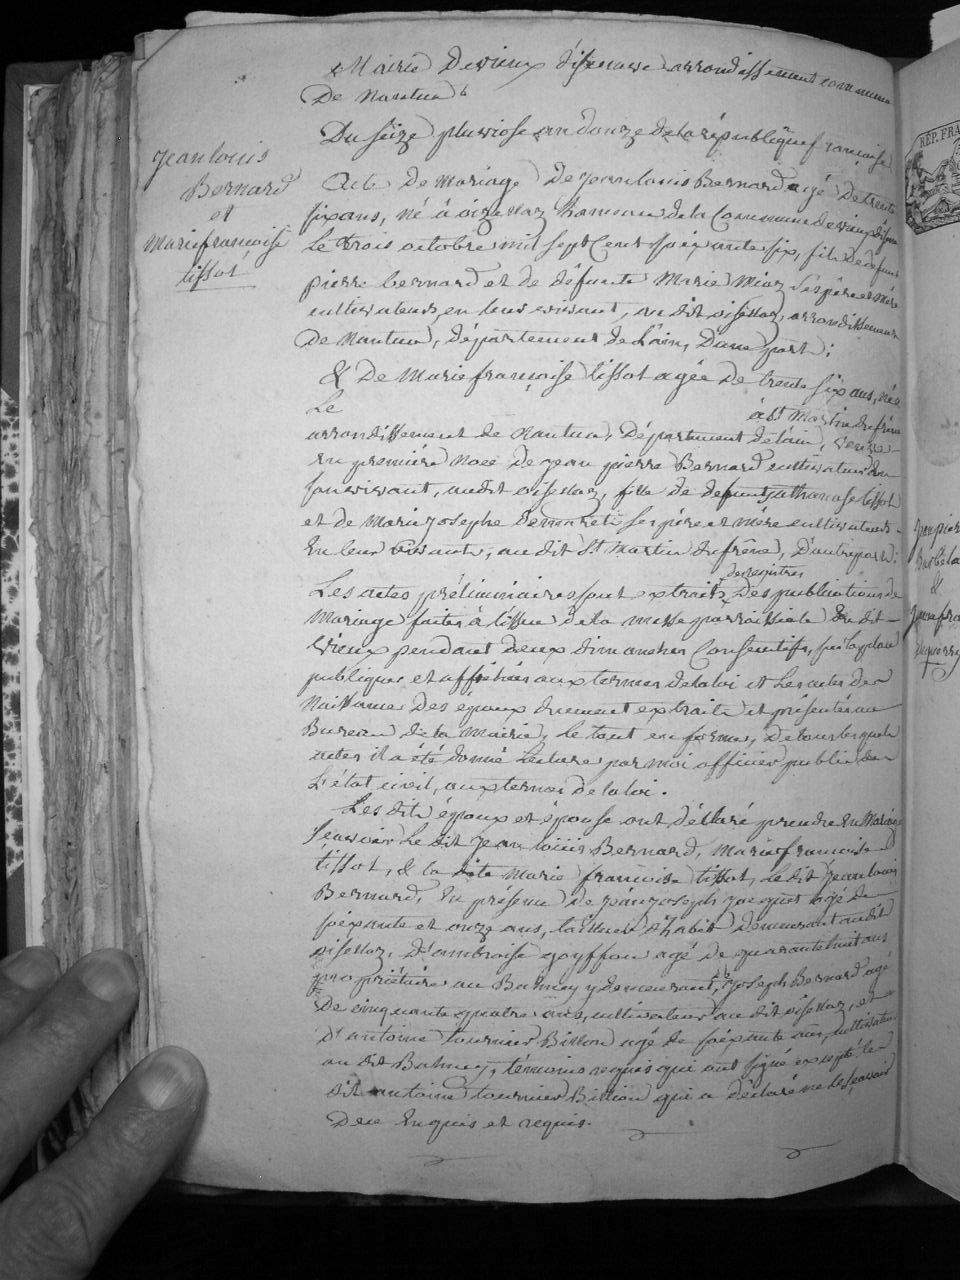 Mairie de vieux d'isenave arrondissement communal
De Nantua
Du seize pluviose an douze de la république française
jean louis
Bernard
et
Marie françoise
tissot
Acte De Mariage De jean louis Bernard agé De trente
six ans, né à oisellaz hameau de la Commune de vieux d'isenave
Le trois octobre mil sept Cent soixante six, fils de defunt
pierre bernard et de défunte Marie Ses père et Mère
cultivateurs, en leur vivant, au dit oisellaz, arrondissement
De Nantua, département de L'ain, D'une part;
& De Marie françoise tissot agée De trente six ans, née
Le à St Martin du frêne
arrondissement de Nantua, Département de l'ain, veuve
en première Noce De jean pierre Bernard cultivateur
son vivant, audit oisellaz, fille de defunt athanase tissot
et de Marie josephe demaret Ses père et mère cultivateurs
En leur vivant, au dit St Martin du frêne, D'autre part:
Les actes préliminaires sont extraits des registres Des publications de
Mariage faites à l'issue de la messe parroissiale du dit
vieux pendant deux dimanches Consecutifs, sur la place
publique et affichées aux termes de la loi et Les actes de
Naissance Des époux duement extraits et présentés au
Bureau de la Mairie, le tout en forme, De tous lesquels
actes il a été donné Lecture par moi officier public de
L'état civil, aux termes de la loi.
Les dits époux et épouse ont déclaré prendre En Mariage
Scavoir Le dit jean louis Bernard, Marie françoise
tissot, & la dite Marie françoise tissot, le dit jean louis
Bernard, En présence De jean joseph jacquet agé de
soixante et onze ans, tailleur d'habit Demeurant audit
oisellaz, D'ambroise goyffon agé de quarante huit ans
propriétaire au Balmay y demeurant, Joseph Bernard agé
De cinquante quatre ans, cultivateur au dit oisellaz, et
D'antoine tournier Billion agé de soixante ans, cultivateur
au dit Balmay, témoins requis qui ont signé excepté le
dit antoine tournier Billion qui a déclaré ne le scavoir
De ce Enquis et requis.
RÉP. FRA
jean pier
&